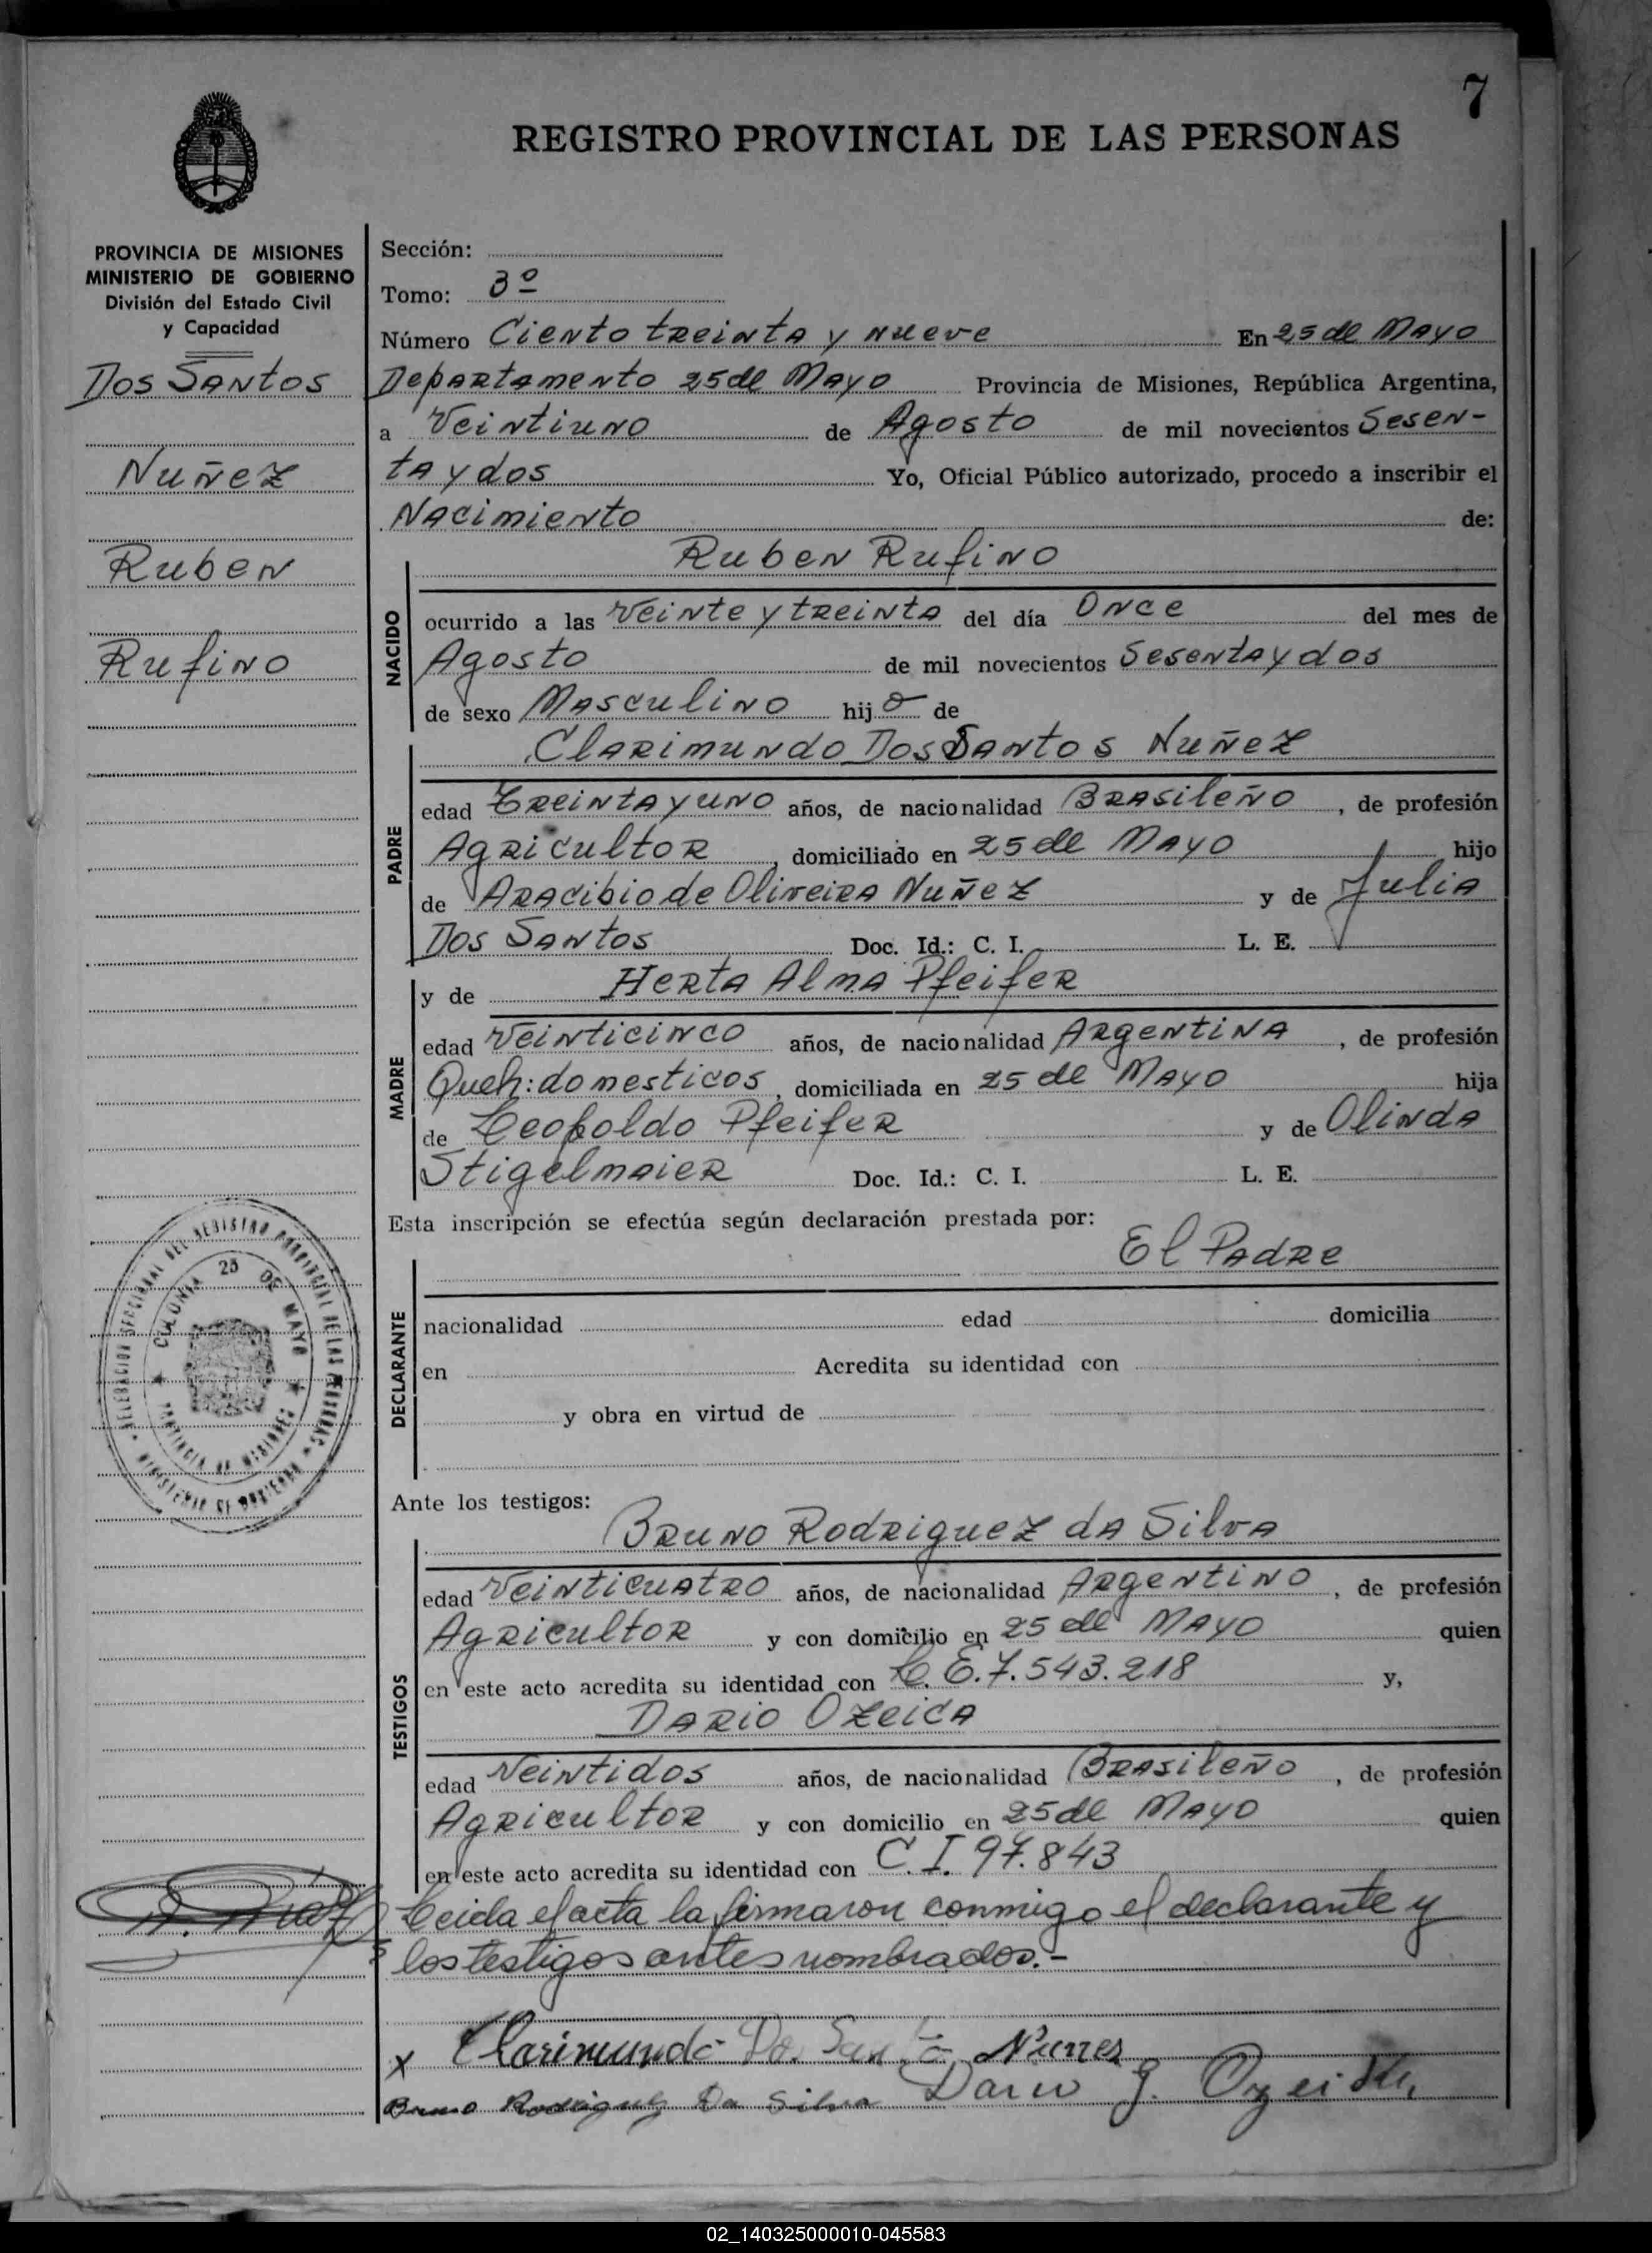 7
REGISTRO PROVINCIAL DE LAS PERSONAS
PROVINCIA DE MISIONES
MINISTERIO DE GOBIERNO
División del Estado Civil
y Capacidad
Dos Santos
Nuñez
Ruben
Rufino
Sección:
Tomo: 3º
Número Ciento treinta y nueve En 25 de Mayo
Departamento 25 de Mayo Provincia de Misiones, República Argentina,
a Veintiuno de Agosto de mil novecientos Sesen-
ta y dos Yo, Oficial Público autorizado, procedo a inscribir el
Nacimiento de:
NACIDO
Ruben Rufino
ocurrido a las Veinte y treinta del día Once del mes de
Agosto de mil novecientos Sesenta y dos
de sexo Masculino hijo de
PADRE
Clarimundo Dos Santos Nuñez
edad Treinta y uno años, de nacionalidad Brasileño, de profesión
Agricultor, domiciliado en 25 de Mayo hijo
de Aracibio de Oliveira Nuñez y de Julia
Dos Santos Doc. Id.: C. I. L. E.
MADRE
y de Herta Alma Pfeifer
edad Veinticinco años, de nacionalidad Argentina, de profesión
Queh: domesticos, domiciliada en 25 de Mayo hija
de Leopoldo Pfeifer y de Olinda
Stigelmaier Doc. Id.: C. I. L. E.
Esta inscripción se efectúa según declaración prestada por:
DECLARANTE
El Padre
nacionalidad edad domicilia
en Acredita su identidad con
y obra en virtud de
DELEGACION SECCIONAL DEL REGISTRO PROVINCIAL DE LAS PERSONAS
COLONIA 25 DE MAYO
PROVINCIA DE MISIONES
MINISTERIO DE GOBIERNO
Ante los testigos:
TESTIGOS
Bruno Rodriguez da Silva
edad Veinticuatro años, de nacionalidad Argentino, de profesión
Agricultor y con domicilio en 25 de Mayo quien
en este acto acredita su identidad con L. E. 7.543.218 y,
Dario Ozeica
edad Veintidos años, de nacionalidad Brasileño, de profesión
Agricultor y con domicilio en 25 de Mayo quien
en este acto acredita su identidad con C. I. 97.843
Leida el acta la firmaron conmigo el declarante y
los testigos antes nombrados.-
x Clarimundo Do. Santo Nunes
Bruno Rodriguez Da Silva Dario J.
02_140325000010-045583